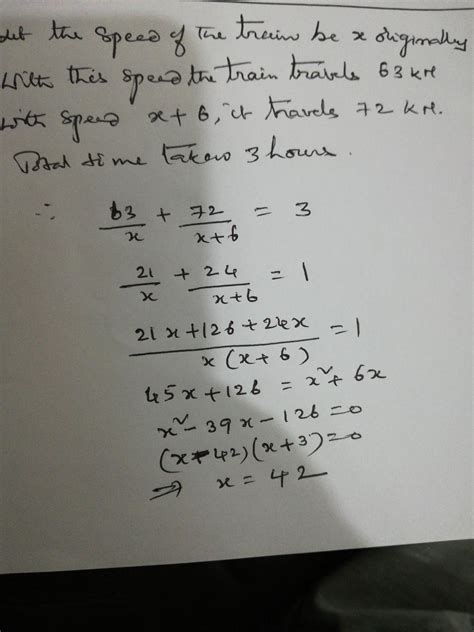 Let the Speed of the train be x originally
With this speed the train travels 63 KM
with speed x+6, it travels 72 KM.
Total time taken 3 hours.
∴ 63/x + 72/(x+6) = 3
21/x + 24/(x+6) = 1
(21x+126+24x)/(x(x+6)) = 1
45x+126 = x²+6x
x²-39x-126=0
(x-42)(x+3)=0
⇒ x = 42